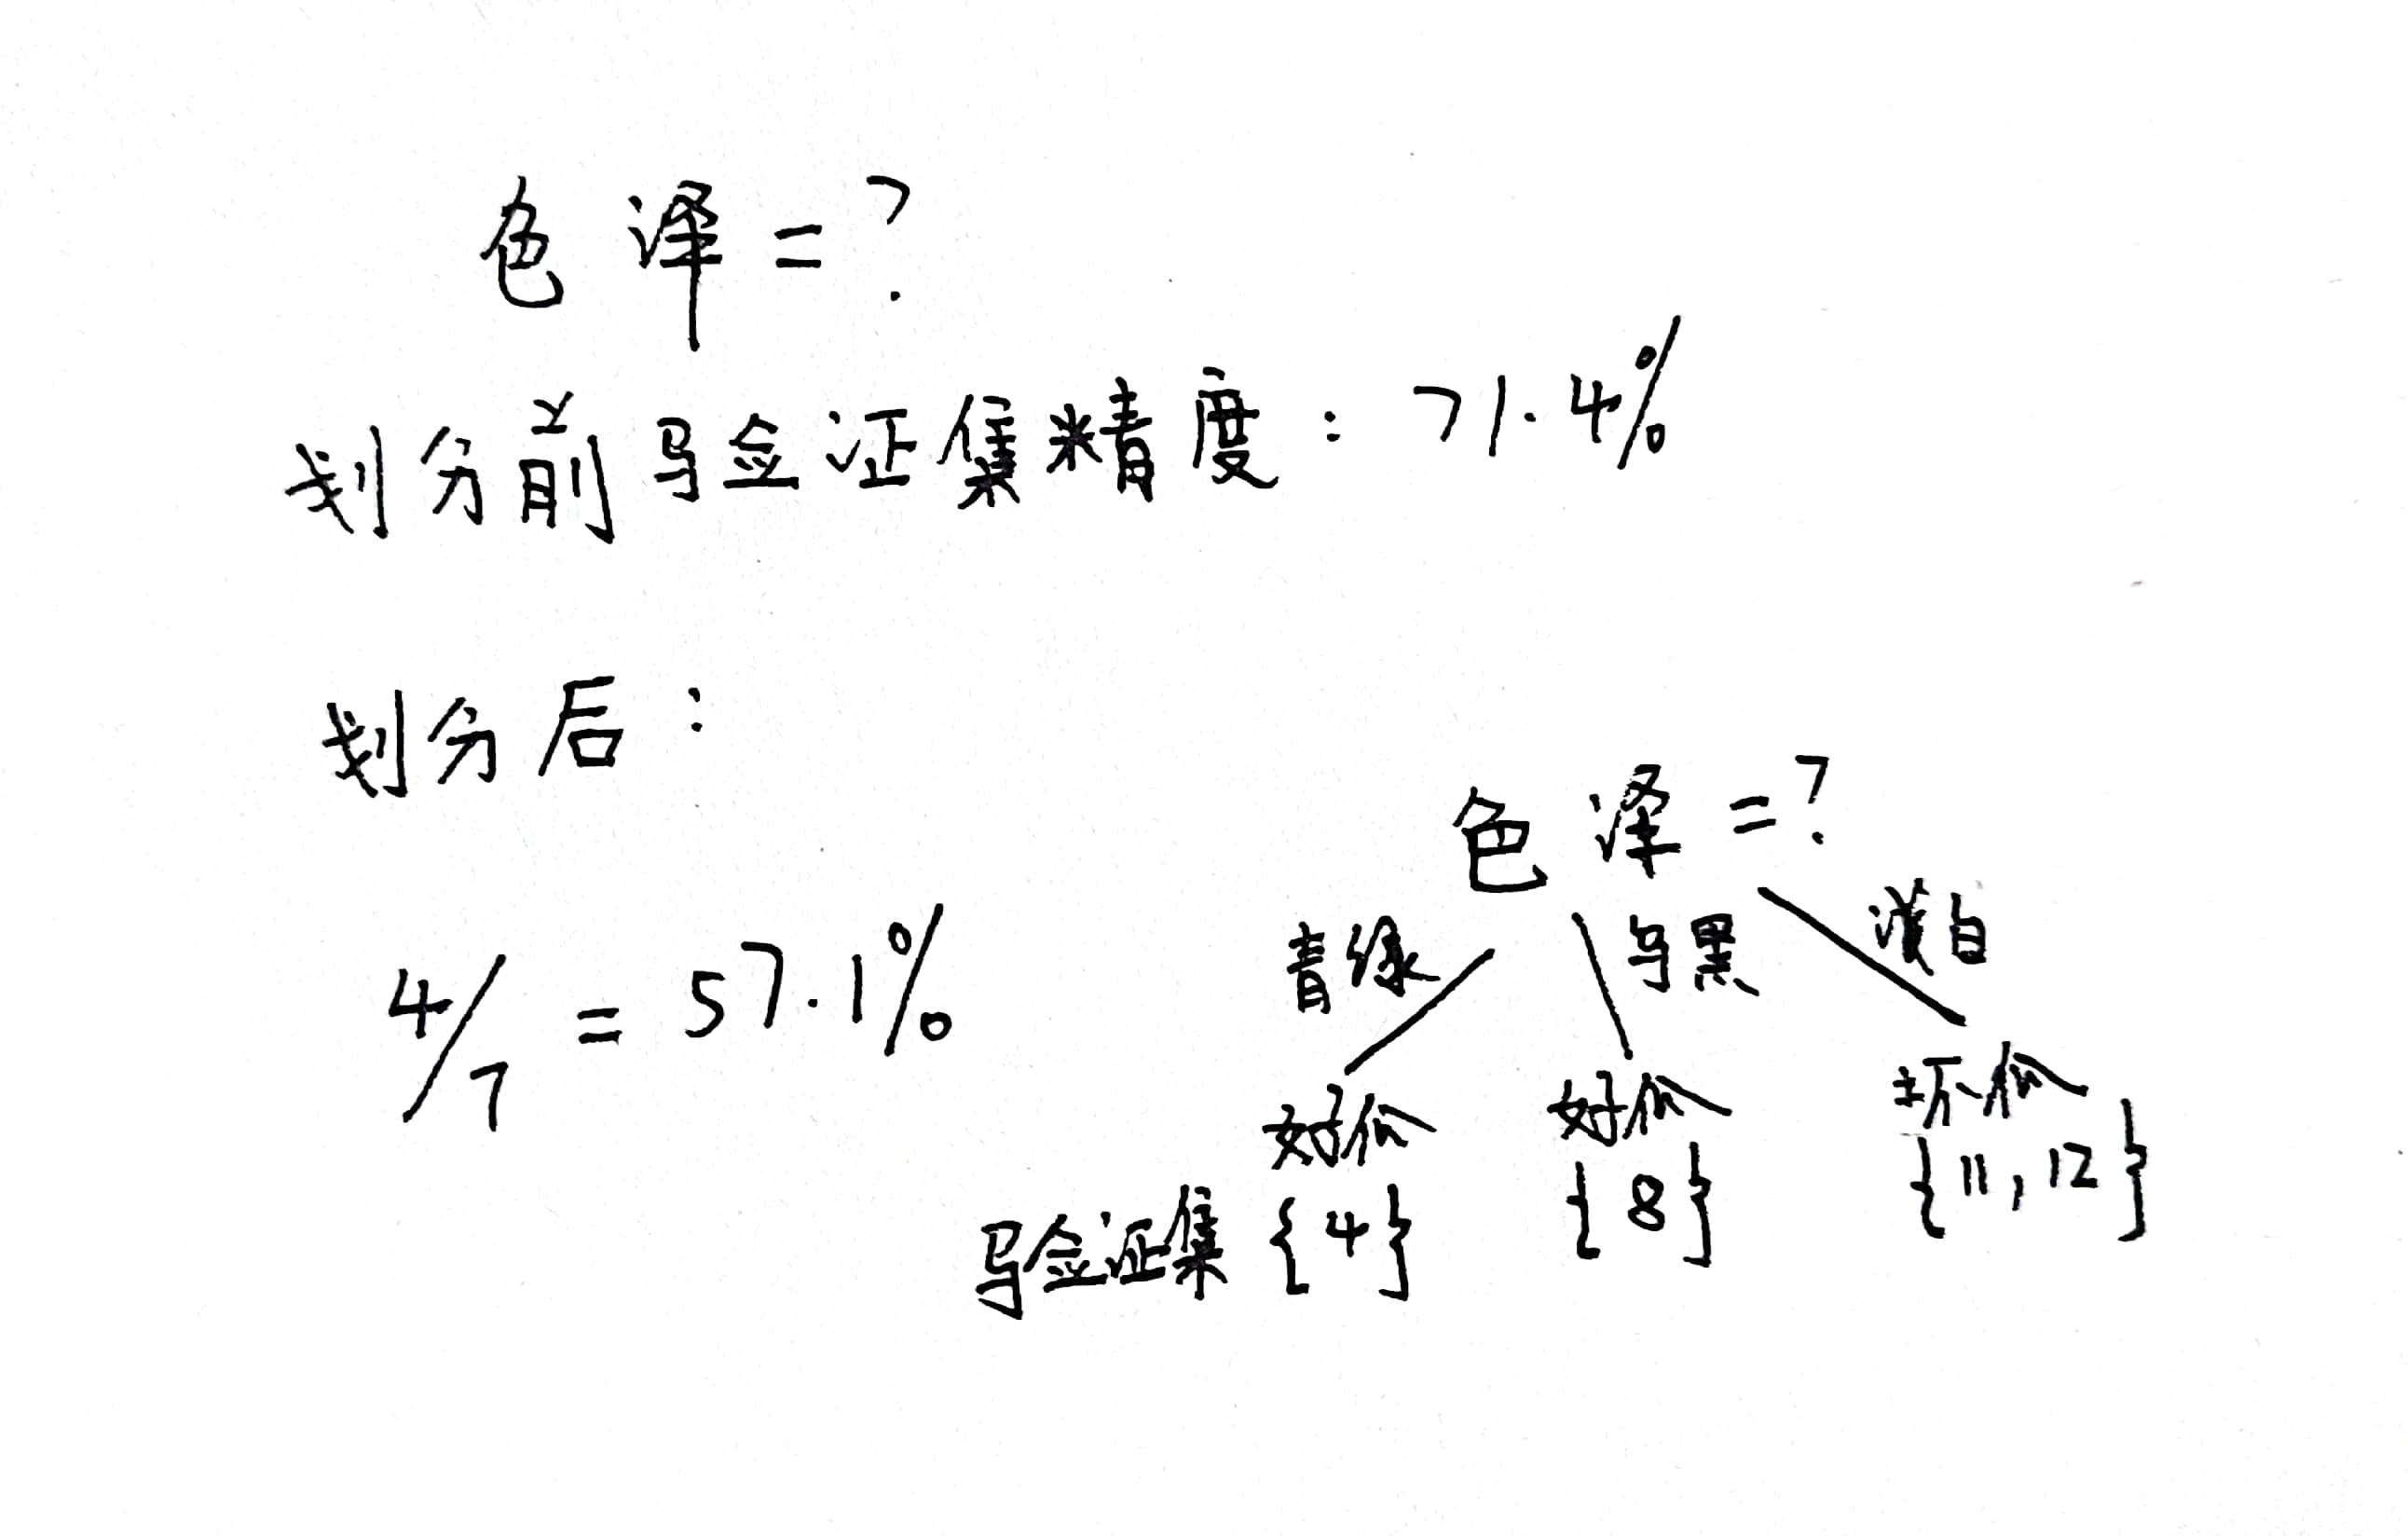 色泽=?
划分前验证集精度：71.4%
划分后：
色泽=?
青绿 乌黑 浅白
4/7 = 57.1%
好瓜 好瓜 坏瓜
验证集 {4} {8} {11,12}